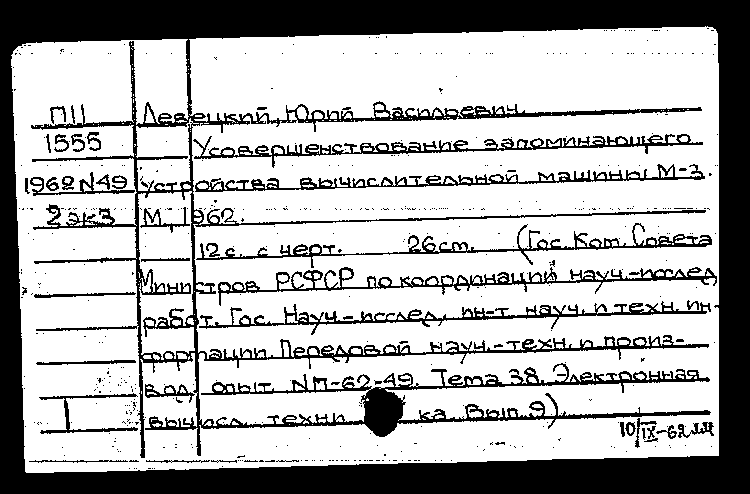 П11 Левецкий, Юрий Васильевич.
1555 Усовершенствование запоминающего
1962 N49 устройства вычислительной машины М-3.
2 экз М., 1962.
12 с. с черт. 26 см. (Гос. Ком. Совета
Министров РСФСР по координации науч.-исслед.
работ. Гос. Науч.-исслед. ин-т науч. и техн. ин-
формации. Передовой науч.-техн. и произ-
вод. опыт. NП-62-49. Тема 38. Электронная
1 вычисл. техни ка Вып. 9).
10/IX-62